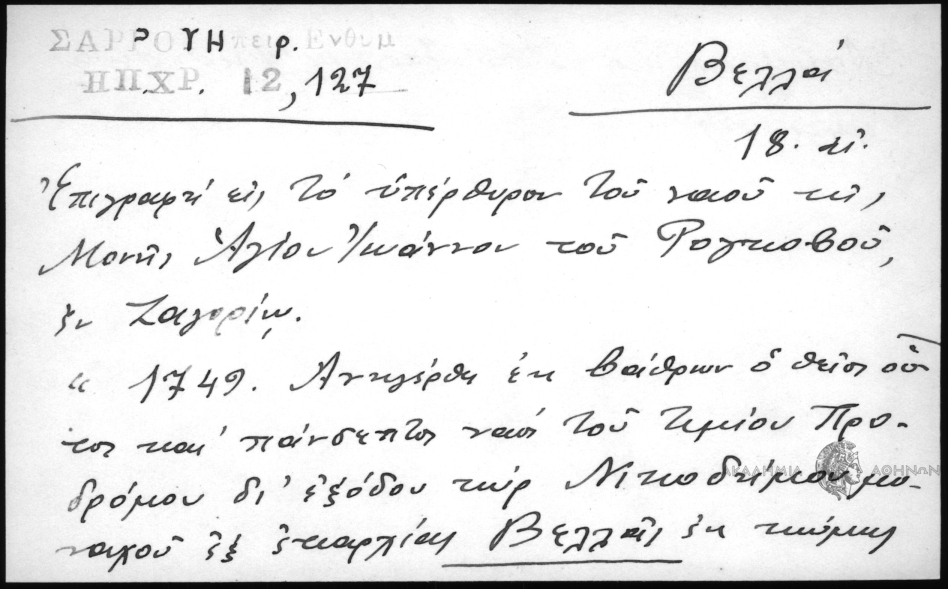 ΣΑΡΡΟΥ Ηπειρ. Ενθυμ
ΗΠ.ΧΡ. 12, 127
Βελλά
18. αἰ.
Ἐπιγραφὴ εἰς τὸ ὑπέρθυρον τοῦ ναοῦ τῆς
Μονῆς Ἁγίου Ἰωάννου τοῦ Ρογκοβοῦ,
ἐν Ζαγορίῳ.
« 1749. Ανηγέρθη ἐκ βάθρων ὁ θεῖος οὗ
τος καὶ πάνσεπτος ναὸς τοῦ τιμίου Προ-
δρόμου δι' ἐξόδου κὺρ Νικοδήμου μο-
ναχοῦ ἐξ ἐπαρχίας Βελλᾶς ἐκ κώμης
ΑΚΑΔΗΜΙΑ ΑΘΗΝΩΝ